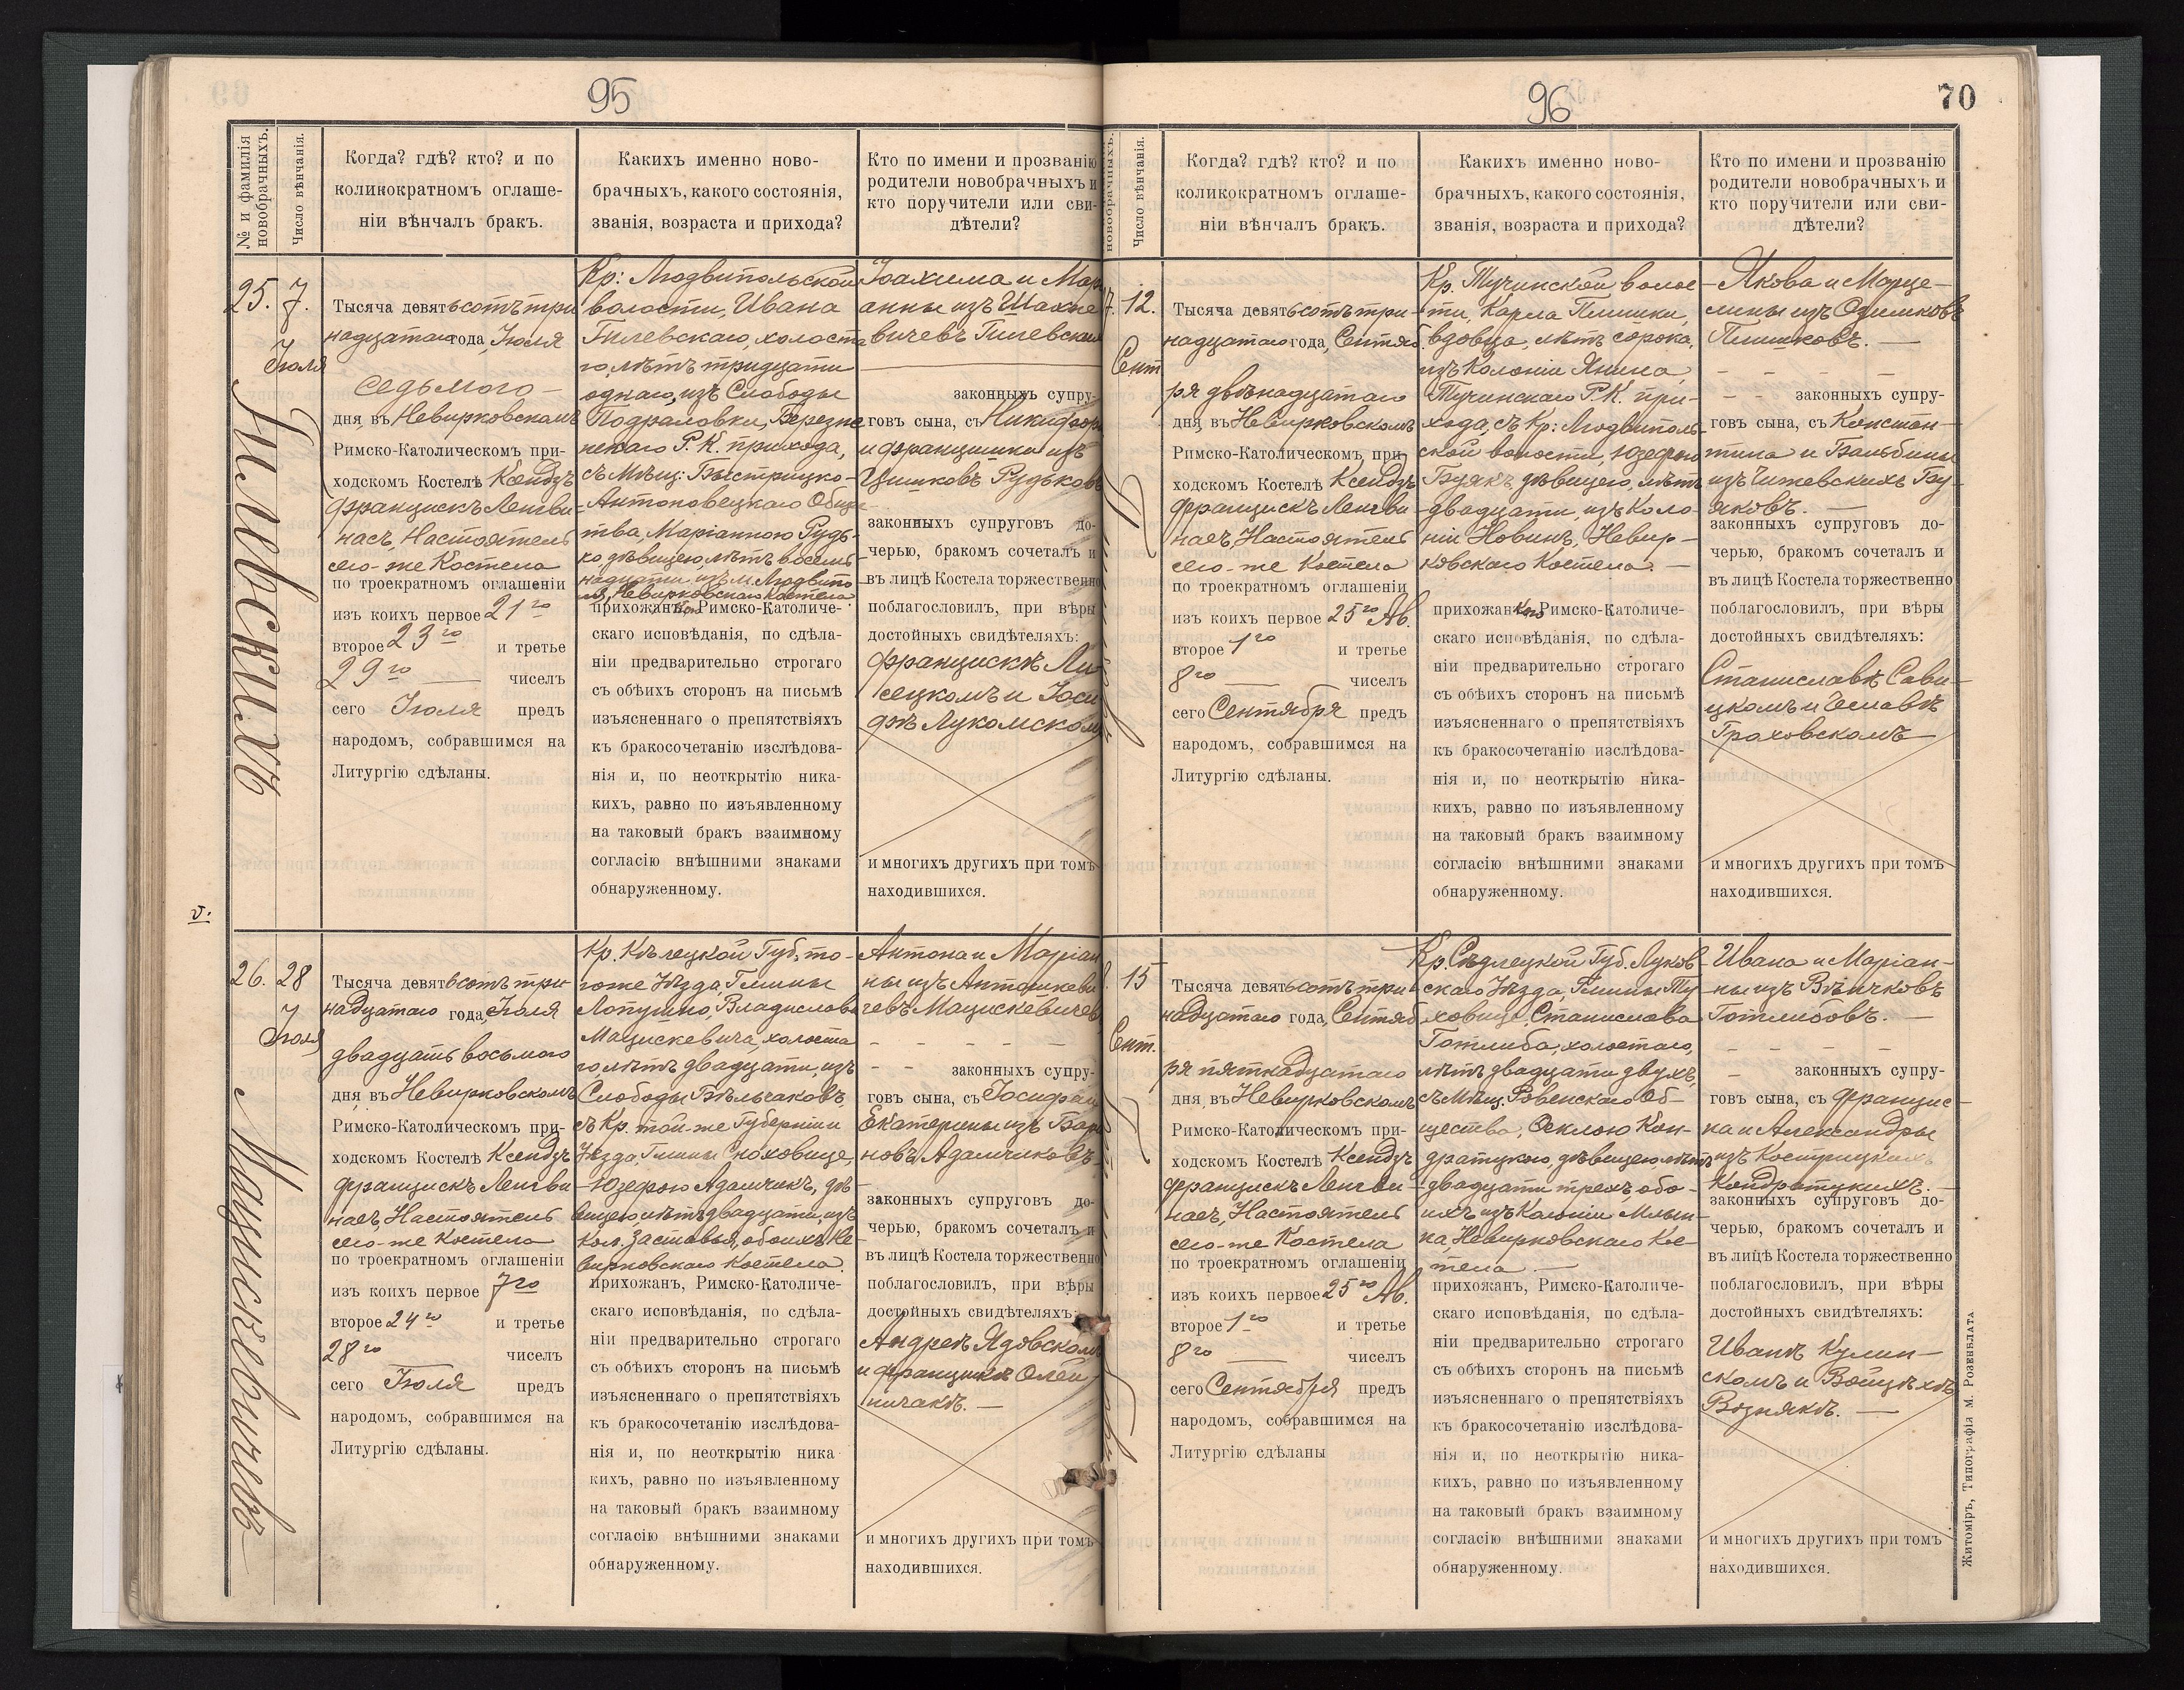 95
№ и фамилія новобрачныхъ.
Число вѣнчанія.
Когда? гдѣ? кто? и по
коликократномъ оглаше-
ніи вѣнчалъ бракъ.
Какихъ именно ново-
брачныхъ, какого состоянія,
званія, возраста и прихода?
Кто по имени и прозванію
родители новобрачныхъ и
кто поручители или сви-
дѣтели?
25.
Гилевскихъ
7.
Іюля
Тысяча девятьсотъ три
надцатаго года, Іюля
седьмого
дня въ Невирковскомъ
Римско-Католическомъ при-
ходскомъ Костелѣ Ксендзъ
Францискъ Ленгви-
насъ, Настоятель
сего-же Костела
по троекратномъ оглашеніи
изъ коихъ первое 21го
второе 23го и третье
29го чиселъ
сего Іюля предъ
народомъ, собравшимся на
Литургію сдѣланы.
Кр: Людвипольской
волости, Ивана
Гилевскаго, холоста
го, лѣтъ тридцати
одного, изъ Слободы
Подраловки, Березне
нскаго Р. К. прихода,
съ Мѣщ: Быстрицко-
Антоновецкаго Общес
тва, Маріанною Рудь-
ко дѣвицею, лѣтъ восем
надцати изъ м. Людвипо
ля, Невирковскаго Костела
прихожанъ, Римско-Католиче-
скаго исповѣданія, по сдѣла-
ніи предварительно строгаго
съ обѣихъ сторонъ на письмѣ
изъясненнаго о препятствіяхъ
къ бракосочетанію изслѣдова-
нія и, по неоткрытію ника-
кихъ, равно по изъявленному
на таковый бракъ взаимному
согласію внѣшними знаками
обнаруженному.
Іоахима и Мар
анны изъ Шахне
вичевъ Гилевских
законныхъ супру-
говъ сына, съ Никифора
и Францишки изъ
Цишковъ Рудьковъ
законныхъ супруговъ до-
черью, бракомъ сочеталъ и
въ лицѣ Костела торжественно
поблагословилъ, при вѣры
достойныхъ свидѣтеляхъ:
Францискѣ Ли
сецкомъ и Іоси
фѣ Лукомском
и многихъ другихъ при томъ
находившихся.
26.
Мацискевичевъ
28
Іюля
Тысяча девятьсотъ три-
надцатаго года, Іюля
двадцать восьмого
дня въ Невирковскомъ
Римско-Католическомъ при-
ходскомъ Костелѣ Ксендзъ
Францискъ Ленгви-
насъ, Настоятель
сего-же Костела
по троекратномъ оглашеніи
изъ коихъ первое 7го
второе 24го и третье
28го чиселъ
сего Іюля предъ
народомъ, собравшимся на
Литургію сдѣланы.
Кр. Кѣлецкой Губ., то-
гоже Уѣзда, Гмины
Лопушно, Владислава
Мацискевича, холоста
го, лѣтъ двадцати, изъ
Слободы Бѣльчаковъ,
съ Кр. той-же Губерніи
Уѣзда, Гмины Сноховице,
Юзефою Адамчикъ, дѣ
вицею, лѣтъ двадцати, изъ
Кол. Заставья, обоихъ Не
вирковскаго Костела.
прихожанъ, Римско-Католиче-
скаго исповѣданія, по сдѣла-
ніи предварительно строгаго
съ обѣихъ сторонъ на письмѣ
изъясненнаго о препятствіяхъ
къ бракосочетанію изслѣдова-
нія и, по неоткрытію ника
кихъ, равно по изъявленному
на таковый бракъ взаимному
согласію внѣшними знаками
обнаруженному.
Антона и Маріан
ны изъ Антошкеви
чевъ Мацискевичев
законныхъ супру-
говъ сына, съ Іосифа и
Екатерины изъ Бар
новъ Адамчиковъ
законныхъ супруговъ до-
черью, бракомъ сочеталъ и
въ лицѣ Костела торжественно
поблагословилъ, при вѣры
достойныхъ свидѣтеляхъ:
Андреѣ Ядовском
и Францишкѣ Олей
ничакѣ.
и многихъ другихъ при томъ
находившихся.
96
70
новобрачныхъ.
Число вѣнчанія.
Когда? гдѣ? кто? и по
коликократномъ оглаше-
ніи вѣнчалъ бракъ.
Какихъ именно ново-
брачныхъ, какого состоянія,
званія, возраста и прихода?
Кто по имени и прозванію
родители новобрачныхъ и
кто поручители или сви-
дѣтели?
7.
12.
Сент
Тысяча девятьсотъ три-
надцатаго года, Сентяб
ря двѣнадцатаго
дня въ Невирковскомъ
Римско-Католическомъ при-
ходскомъ Костелѣ Ксендзъ
Францискъ Ленгви-
насъ, Настоятель
сего-же Костела
по троекратномъ оглашеніи
изъ коихъ первое 25го Ав.
второе 1го и третье
8го чиселъ
сего Сентября предъ
народомъ, собравшимся на
Литургію сдѣланы.
Кр. Тучинской волос
ти, Карла Плишки,
вдовца, лѣтъ сорока,
изъ Колоніи Янина,
Тучинскаго Р. К. при-
хода, съ Кр: Людвиполь
ской волости, Юзефою
Буякъ, дѣвицею, лѣтъ
двадцати, изъ Коло-
ніи Новинъ, Невир-
ковскаго Костела.
прихожанъ, Римско-Католиче-
скаго исповѣданія, по сдѣла-
ніи предварительно строгаго
съ обѣихъ сторонъ на письмѣ
изъясненнаго о препятствіяхъ
къ бракосочетанію изслѣдова-
нія и, по неоткрытію ника-
кихъ, равно по изъявленному
на таковый бракъ взаимному
согласію внѣшними знаками
обнаруженному.
Якова и Марце-
лины изъ Озимковъ
Плишковъ.
законныхъ супру-
говъ сына, съ Констан-
тина и Бальбины
изъ Чижевскихъ Бу-
яковъ.
законныхъ супруговъ до-
черью, бракомъ сочеталъ и
въ лицѣ Костела торжественно
поблагословилъ, при вѣры
достойныхъ свидѣтеляхъ:
Станиславѣ Сави-
цкомъ и Чеславѣ
Гроховскомъ
и многихъ другихъ при томъ
находившихся.
15
Сент.
Тысяча девятьсотъ три-
надцатаго года, Сентяб
ря пятнадцатаго
дня въ Невирковскомъ
Римско-Католическомъ при-
ходскомъ Костелѣ Ксендзъ
Францискъ Ленгви-
насъ, Настоятель
сего-же Костела
по троекратномъ оглашеніи
изъ коихъ первое 25го Ав.
второе 1го и третье
8го чиселъ
сего Сентября предъ
народомъ, собравшимся на
Литургію сдѣланы
Кр. Сѣдлецкой Губ. Луков-
скаго Уѣзда, Гмины Ту-
ховице, Станислава
Готлиба, холостаго,
лѣтъ двадцати двухъ,
съ Мѣщ. Ровенскаго Об-
щества, Феклою Кон-
дратукою, дѣвицею, лѣтъ
двадцати трехъ, обо-
ихъ изъ Колоніи Млын-
ка, Невирковскаго Кос-
тела
прихожанъ, Римско-Католиче-
скаго исповѣданія, по сдѣла-
ніи предварительно строгаго
съ обѣихъ сторонъ на письмѣ
изъясненнаго о препятствіяхъ
къ бракосочетанію изслѣдова-
нія и, по неоткрытію ника-
кихъ, равно по изъявленному
на таковый бракъ взаимному
согласію внѣшними знаками
обнаруженному.
Ивана и Маріан-
ны изъ Вѣнчковъ
Готлибовъ.
законныхъ супру-
говъ сына, съ Францис-
ка и Александры
изъ Кострицкихъ
Кондратукихъ.
законныхъ супруговъ до-
черью, бракомъ сочеталъ и
въ лицѣ Костела торжественно
поблагословилъ, при вѣры
достойныхъ свидѣтеляхъ:
Иванѣ Кулин-
скомъ и Войцѣхѣ
Вознякѣ.
и многихъ другихъ при томъ
находившихся.
Житоміръ, Типографія М. Розенблата